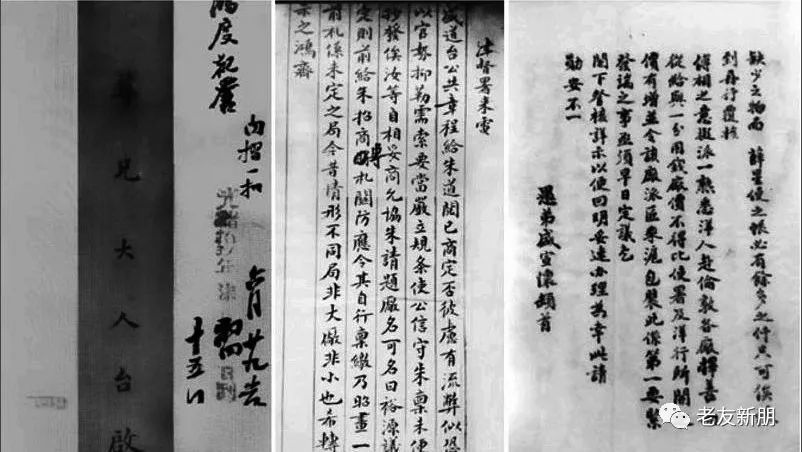 兄大人台啟
六月廿九
十五
津督署来電
盛道台公共章程給朱道閱已商定否彼慮有流弊似恐
以官勢抑勒需索要當嚴立規条使公信守朱稟未便
抄發俟汝等自相妥商允協朱請題廠名可名曰裕源議
定則前給朱招商札關防應令其自行稟繳乃昭畫一
前札係未定之局今昔情形不同局非大儆非小也希轉
示之鴻齋
缺少之物而薛星使之帳必有餘多之件只可俟
到再行覆核
傅相之意擬派一熟悉洋人赴倫敦各廠擇善
從給與一分用錢廠價不得比使署及洋行所開
價有增並令該廠派匠來滬包裝此係第一要緊
發端之事亟須早日定議乞
閣下詧核詳示以便回明妥速办理共幸此請
勛安不一
愚弟盛宣懷頓首
老友新朋